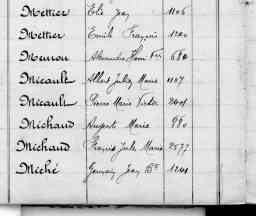 Mettier Elie Jay 1106
Mettier Emile François 1200
Meuron Alexandre Henri 680
Micault Albert Julien Marie 1107
Micault Pierre Marie Victor 2401
Michaud August Marie 980
Michaud Francis Jules Marie 2577
Miché Jay Bte 1241